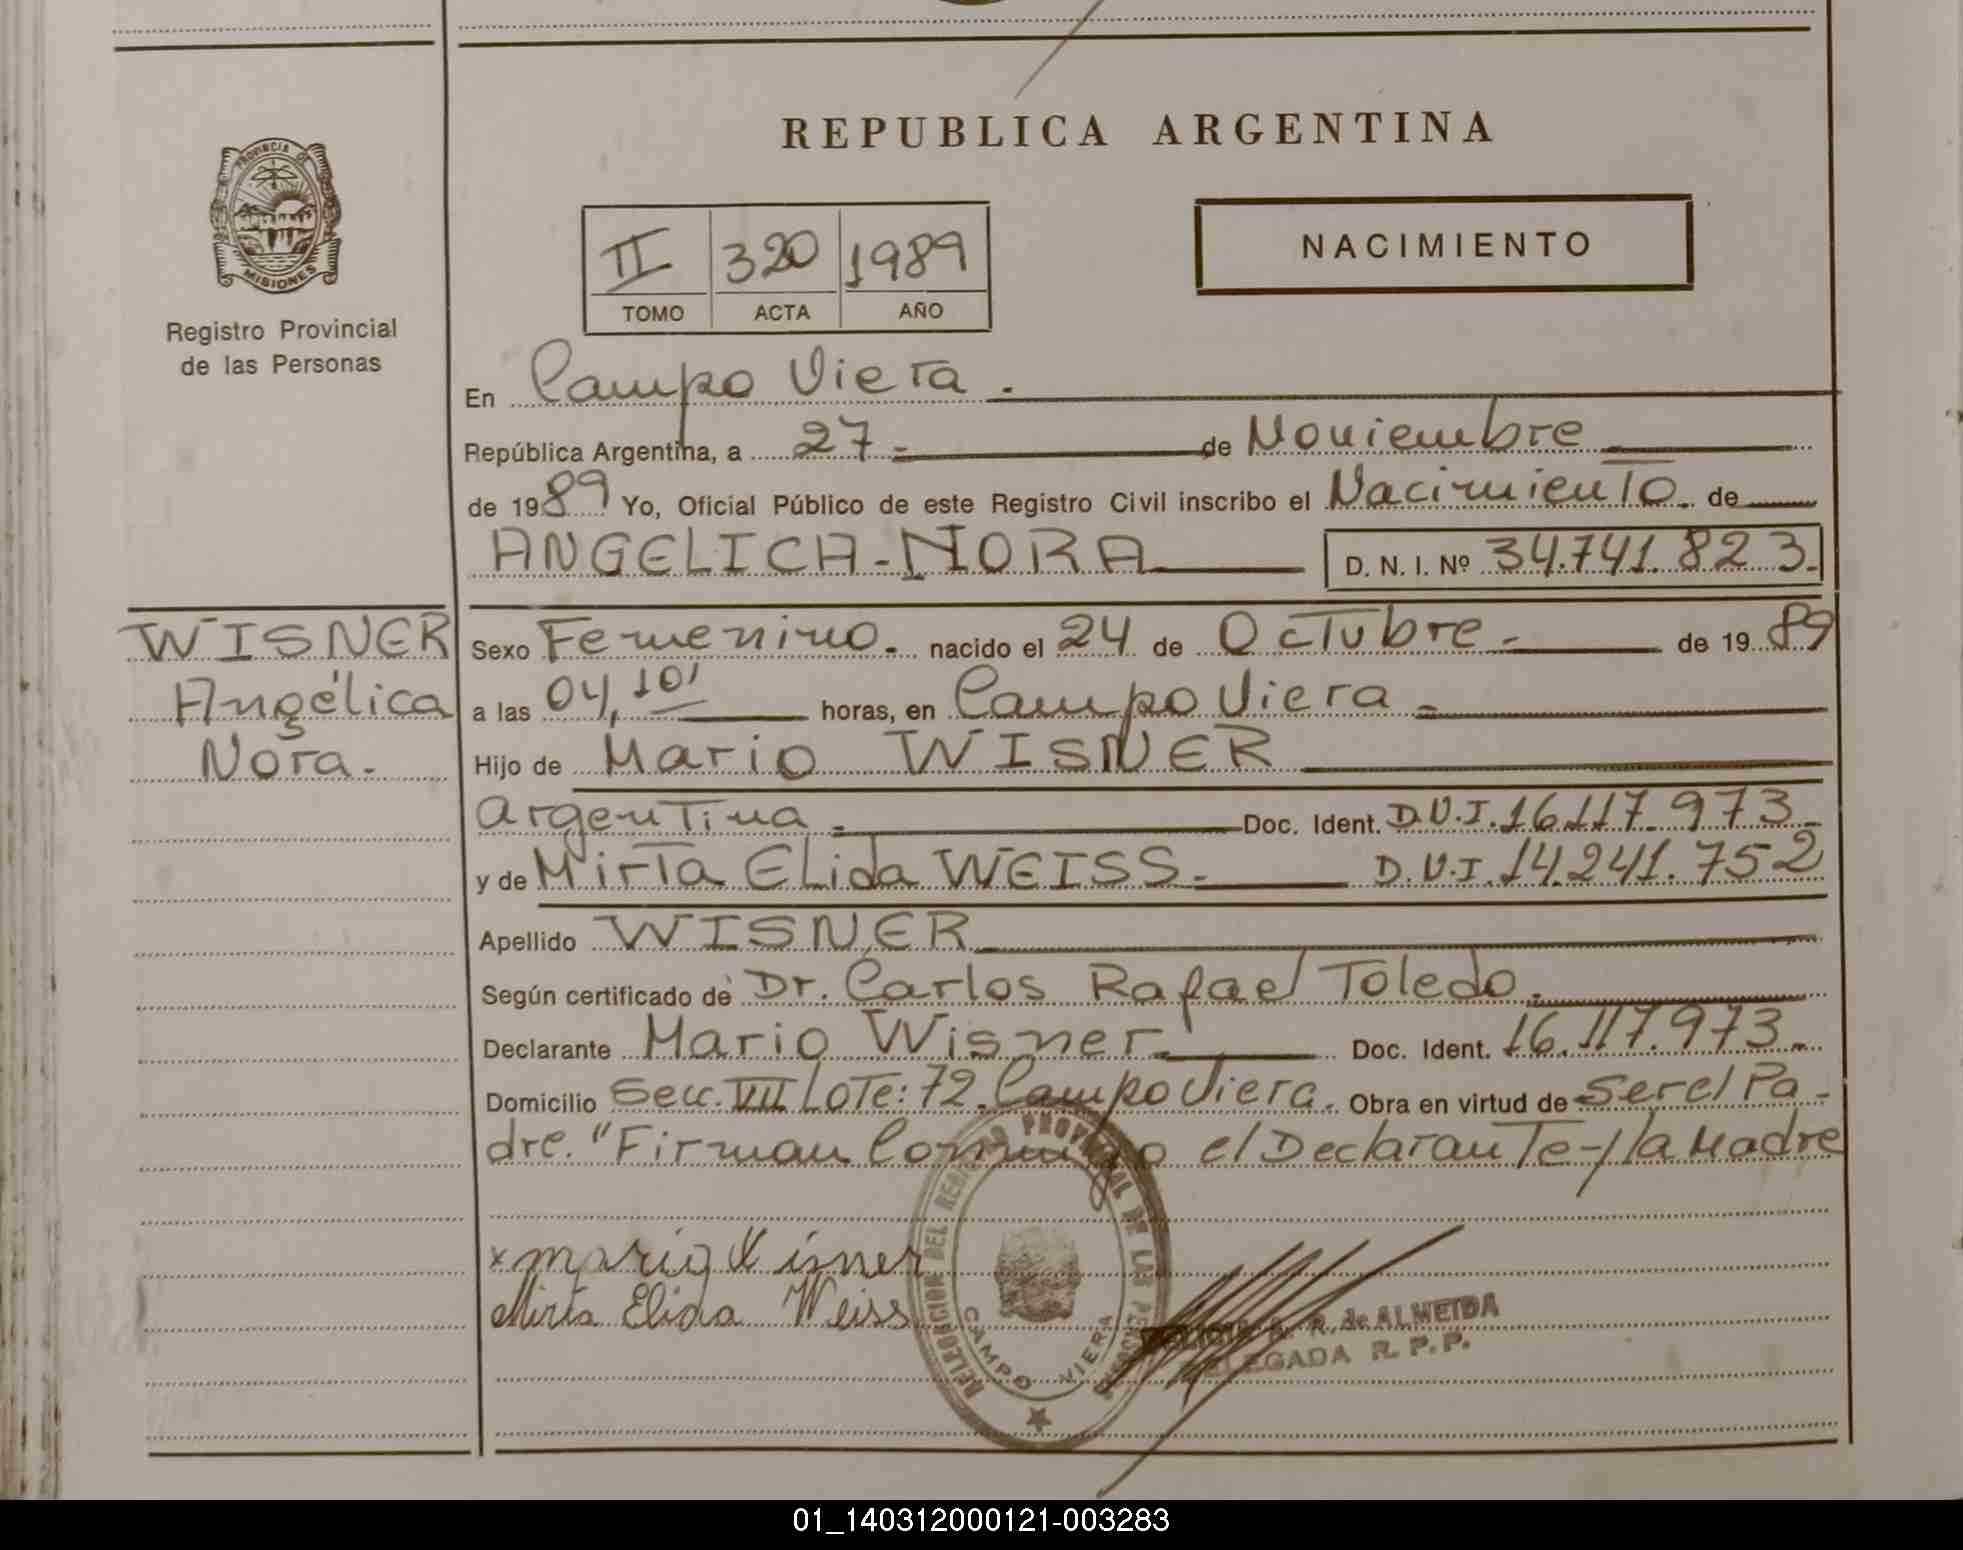 REPUBLICA ARGENTINA
PROVINCIA DE
MISIONES
Registro Provincial
de las Personas
II 320 1989
TOMO ACTA AÑO
NACIMIENTO
En Campo Viera.
República Argentina, a 27 - de Noviembre
de 1989 Yo, Oficial Público de este Registro Civil inscribo el Nacimiento. de
ANGELICA-NORA D. N. I. Nº 34.741.823.
WISNER
Angélica
Nora.
Sexo Femenino. nacido el 24 de Octubre - de 1989
a las 04,10' horas, en Campo Viera -
Hijo de Mario WISNER
Argentina - Doc. Ident. D.N.I. 16.117.973
y de Mirta ELida WEISS. D.N.I. 14.241.752
Apellido WISNER
Según certificado de Dr. Carlos Rafael Toledo.
Declarante Mario Wisner. Doc. Ident. 16.117.973.
Domicilio Secc. VII Lote: 72. Campo Viera. Obra en virtud de Ser el Pa-
dre. "Firman Conmigo el Declarante-y la Madre
x mario Wisner
Mirta Elida Weiss
DELEGACION DEL REGISTRO PROVINCIAL DE LAS PERSONAS
CAMPO VIERA
R. de ALMEIDA
DELEGADA R. P. P.
01_140312000121-003283